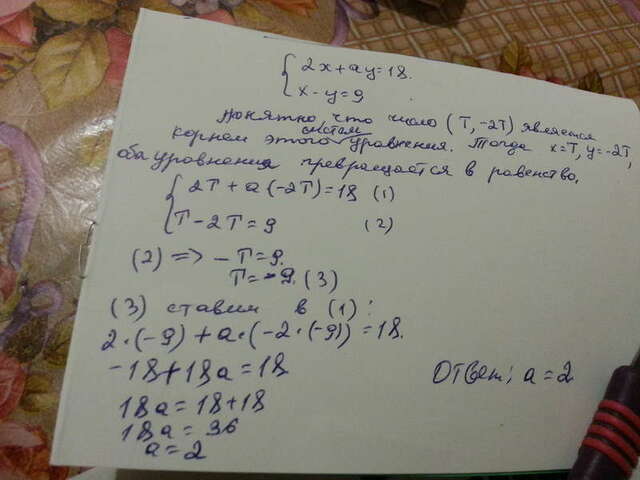 2x + ay = 18.
x - y = 9
Понятно, что число (T, -2T) является
корнем этого систем уравнения. Тогда x=T, y=-2T,
оба уравнения превращается в равенство.
2T + a(-2T) = 18 (1)
T - 2T = 9 (2)
(2) => -T = 9.
T = -9. (3)
(3) ставим в (1):
2·(-9) + a·(-2·(-9)) = 18.
-18 + 18a = 18
18a = 18+18
18a = 36
a = 2
Ответ: a = 2